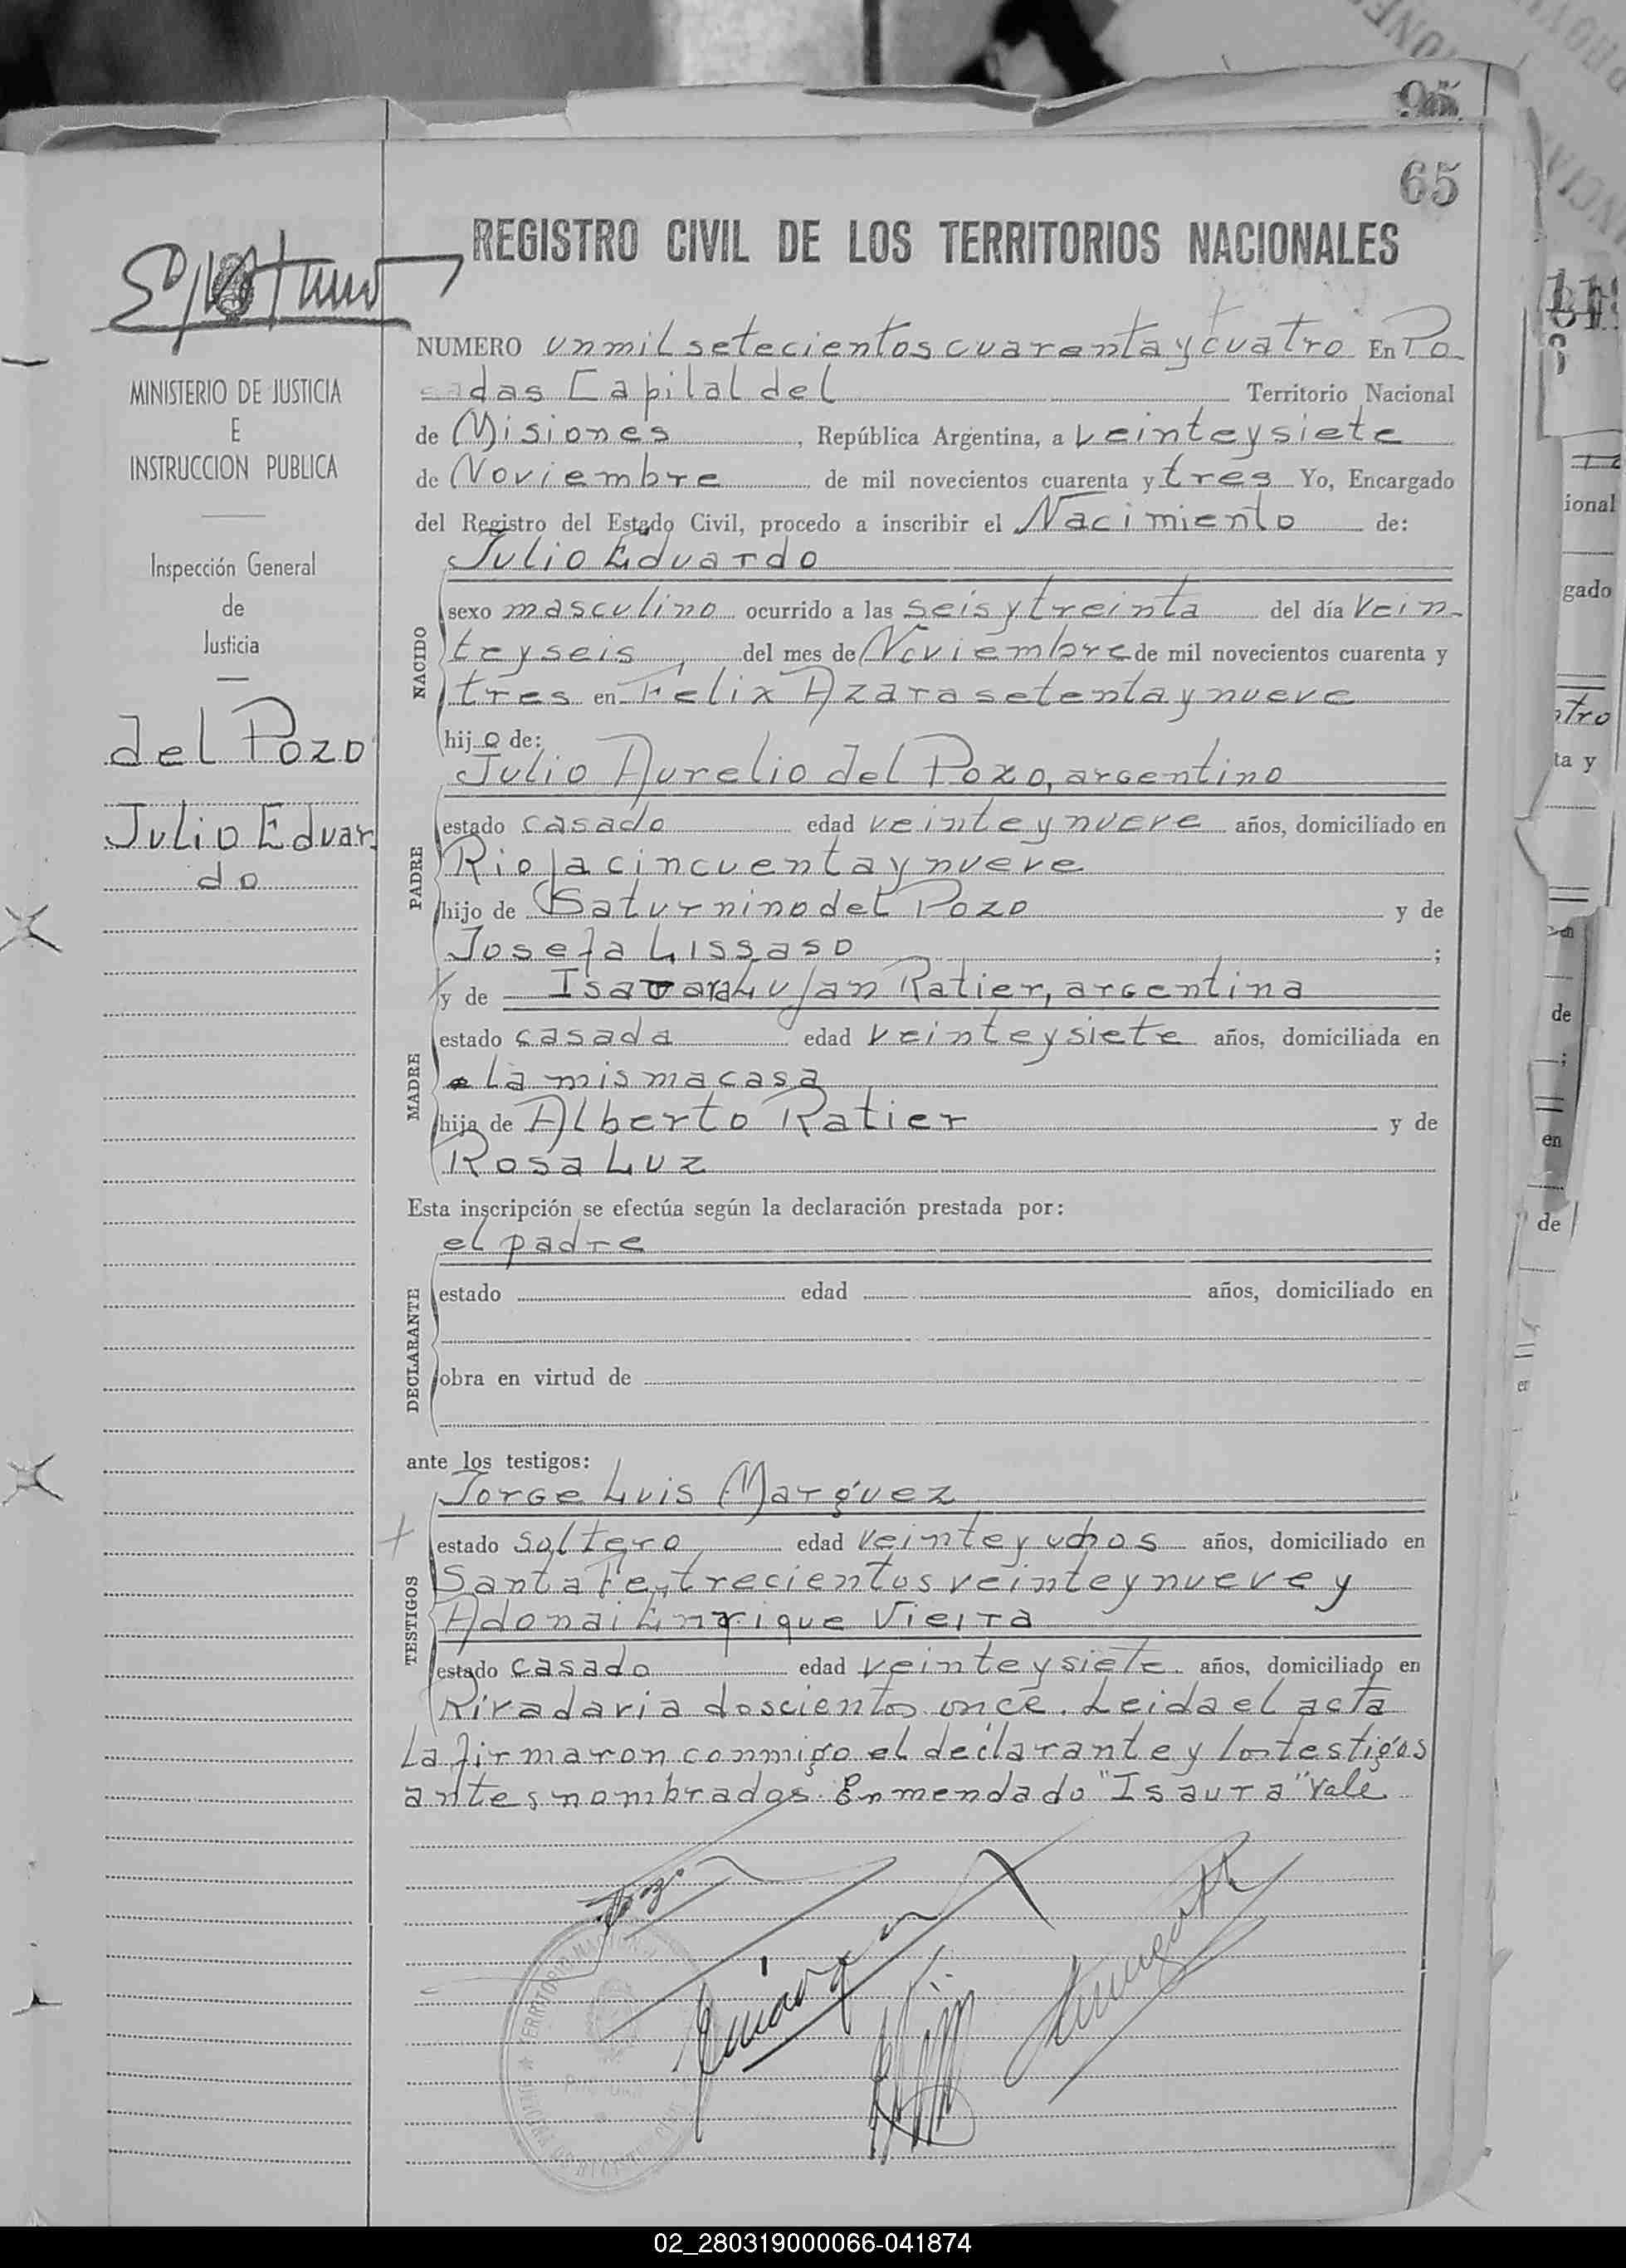 95
65
REGISTRO CIVIL DE LOS TERRITORIOS NACIONALES
MINISTERIO DE JUSTICIA
E
INSTRUCCION PUBLICA
Inspección General
de
Justicia
del Pozo
Julio Eduar
do
NUMERO un mil setecientos cuarenta y cuatro En Po
sadas Capital del Territorio Nacional
de Misiones, República Argentina, a veinte y siete
de Noviembre de mil novecientos cuarenta y tres Yo, Encargado
del Registro del Estado Civil, procedo a inscribir el Nacimiento de:
Julio Eduardo
NACIDO
sexo masculino ocurrido a las seis y treinta del día vein-
te y seis, del mes de Noviembre de mil novecientos cuarenta y
tres en Felix Azara setenta y nueve
hijo de:
Julio Aurelio del Pozo, argentino
PADRE
estado casado edad veinte y nueve años, domiciliado en
Rioja cincuenta y nueve
hijo de Saturnino del Pozo y de
Josefa Lissaso;
y de Isaura Lujan Ratier, argentina
MADRE
estado casada edad veinte y siete años, domiciliada en
la misma casa
hija de Alberto Ratier y de
Rosa Luz
Esta inscripción se efectúa según la declaración prestada por:
el padre
DECLARANTE
estado edad años, domiciliado en
obra en virtud de
ante los testigos:
Jorge Luis Marquez
TESTIGOS
estado soltero edad veinte y años, domiciliado en
Santa Fe, trecientos veinte y nueve y
Adonai Enrique Vieira
estado casado edad veinte y siete años, domiciliado en
Rivadavia doscientos once. Leida el acta
la firmaron conmigo el declarante y los testigos
antes nombrados. Enmendado "Isaura" Vale
02_280319000066-041874